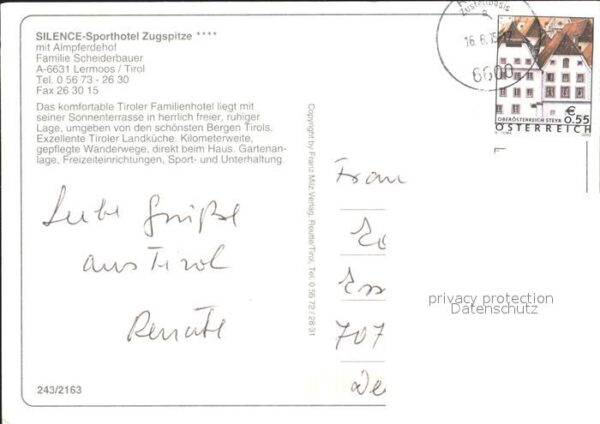 SILENCE-Sporthotel Zugspitze ****
mit Almpferdehof
Familie Scheiderbauer
A-6631 Lermoos / Tirol
Tel. 0 56 73 - 26 30
Fax 26 30 15
Das komfortable Tiroler Familienhotel liegt mit
seiner Sonnenterrasse in herrlich freier, ruhiger
Lage, umgeben von den schönsten Bergen Tirols.
Exzellente Tiroler Landküche. Kilometerweite,
gepflegte Wanderwege, direkt beim Haus. Gartenan-
lage, Freizeiteinrichtungen, Sport- und Unterhaltung.
Liebe Grüße
aus Tirol
Renate
243/2163
Copyright by Franz Milz Verlag, Reutte/Tirol, Tel. 0 56 72 / 28 31
Zustellbasis
6600
€
0,55
OBERÖSTERREICH STEYR
ÖSTERREICH
Frau
707
privacy protection
Datenschutz